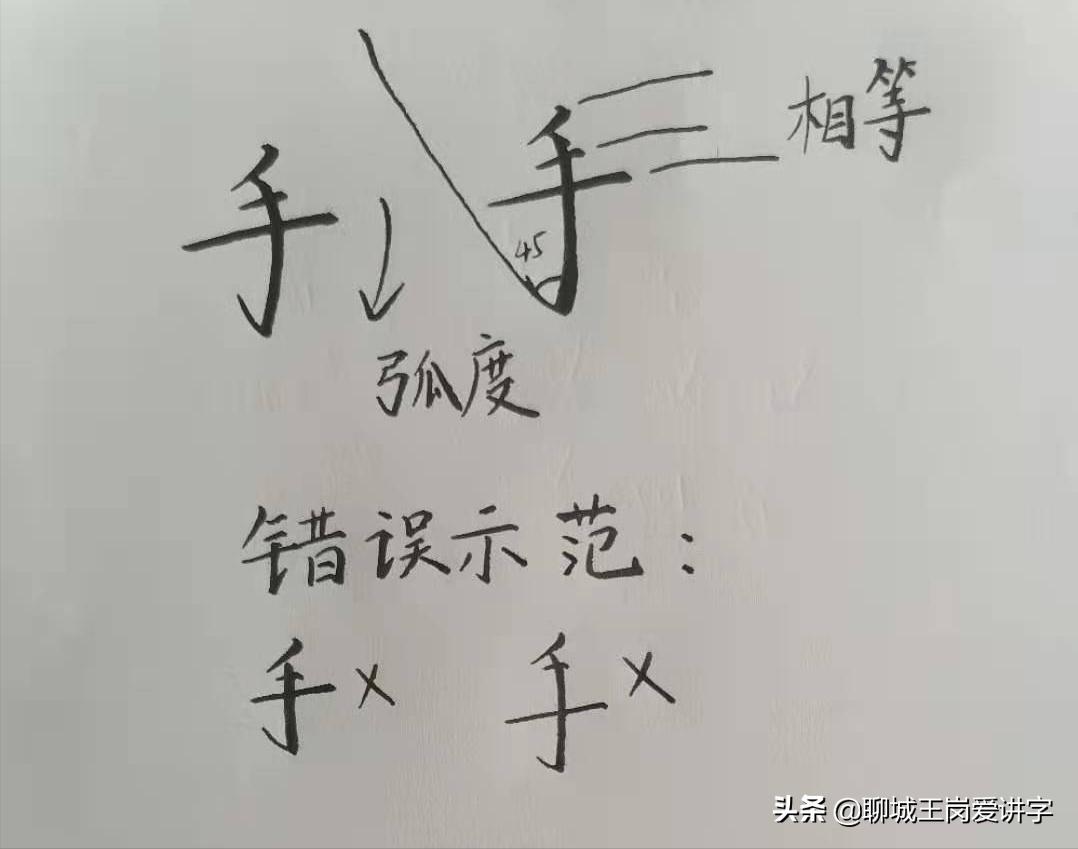 手 手 相等
45
弧度
错误示范：
手× 手×
头条 @聊城王岗爱讲字